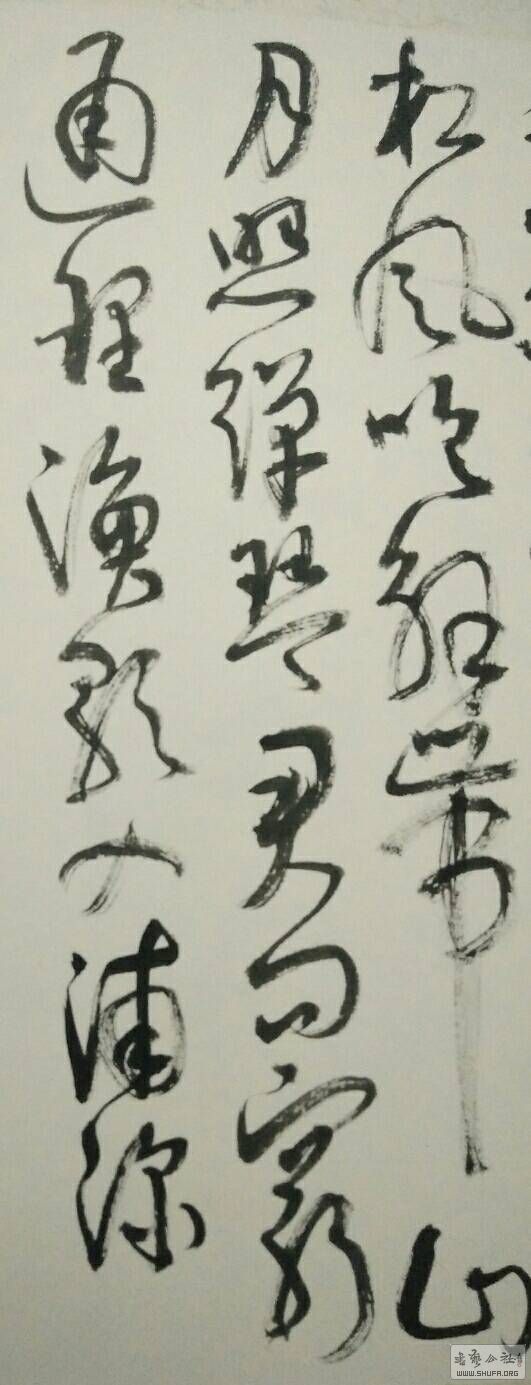 松风吹解带山
月照弹琴君问穷
通理渔歌入浦深
书艺公社
WWW.SHUFA.ORG